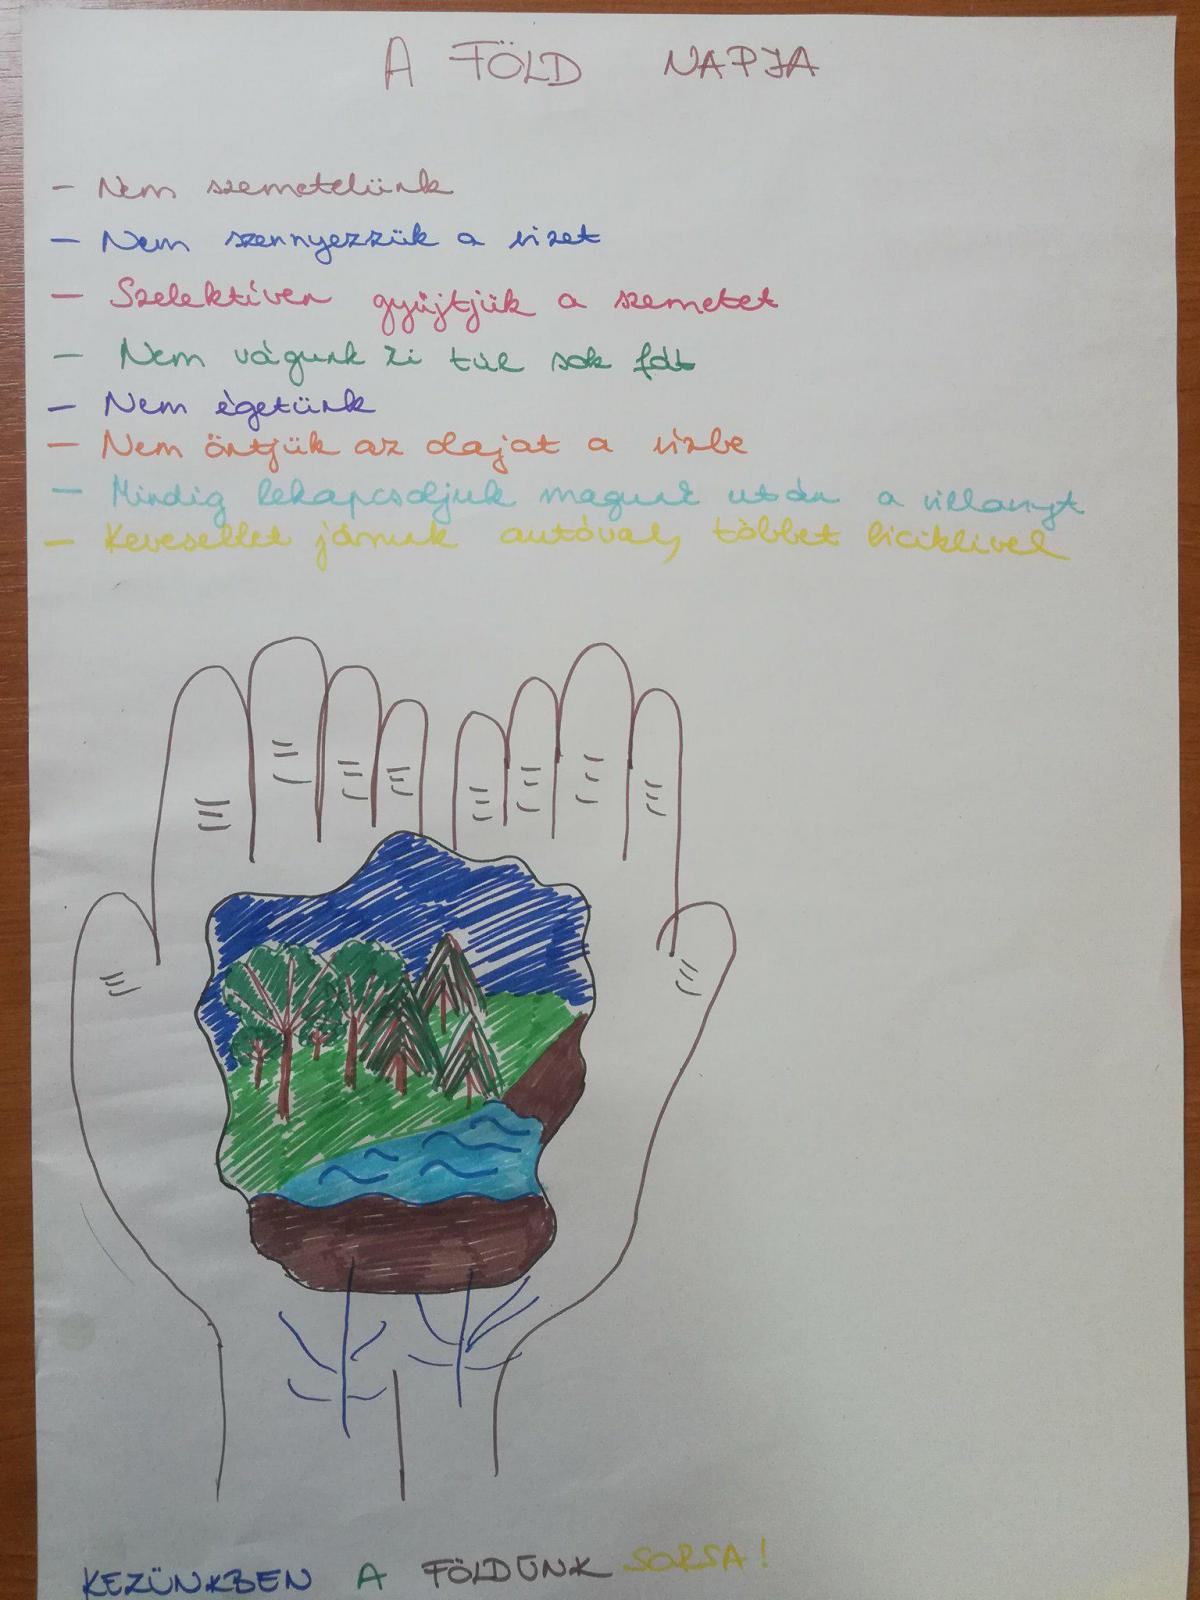 A FÖLD NAPJA
- Nem szemetelünk
- Nem szennyezzük a vizet
- Szelektíven gyűjtjük a szemetet
- Nem vágunk ki túl sok fát
- Nem égetünk
- Nem öntjük az olajat a vízbe
- Mindig lekapcsoljuk magunk után a villanyt
- Kevesebbet járunk autóval, többet biciklivel
KEZÜNKBEN A FÖLDÜNK SORSA!